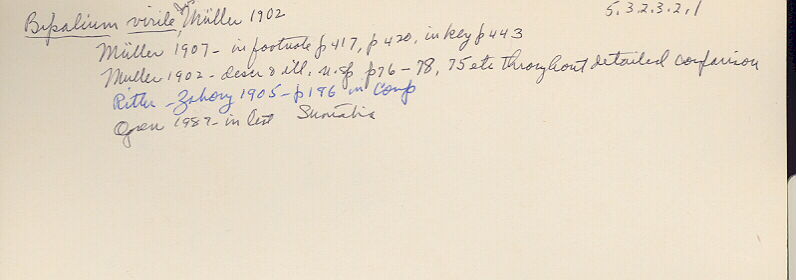 Bipalium virile, Müller 1902 5.3.2.3.2.1
Müller 1907 - in footnote p 417, p 420, in key p 443
Muller 1902 - descr & ill. n. sp p76 - 78, 75 etc throughout detailed comparison
Ritter - Zahony 1905 - p 196 in Comp
1987 - in list Sumatra